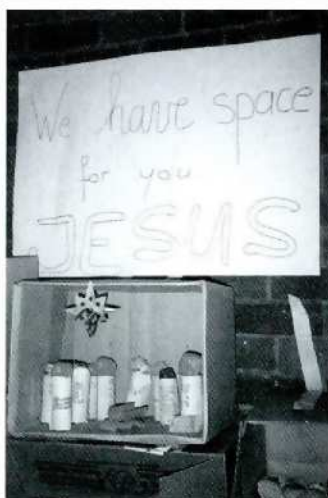 We have space
for you
JESUS